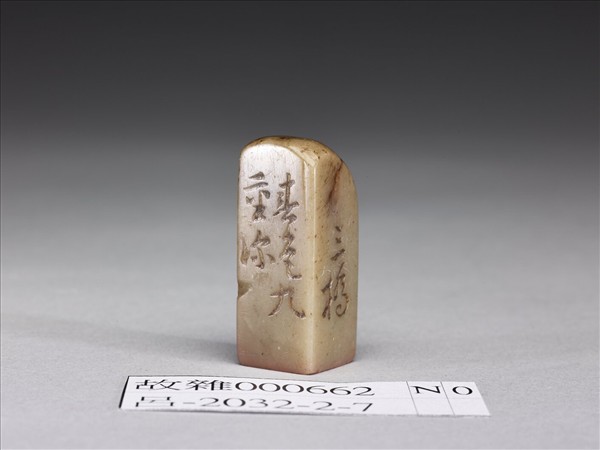 春色九
重深
三橋
故雜000662 N 0
呂-2032-2-7